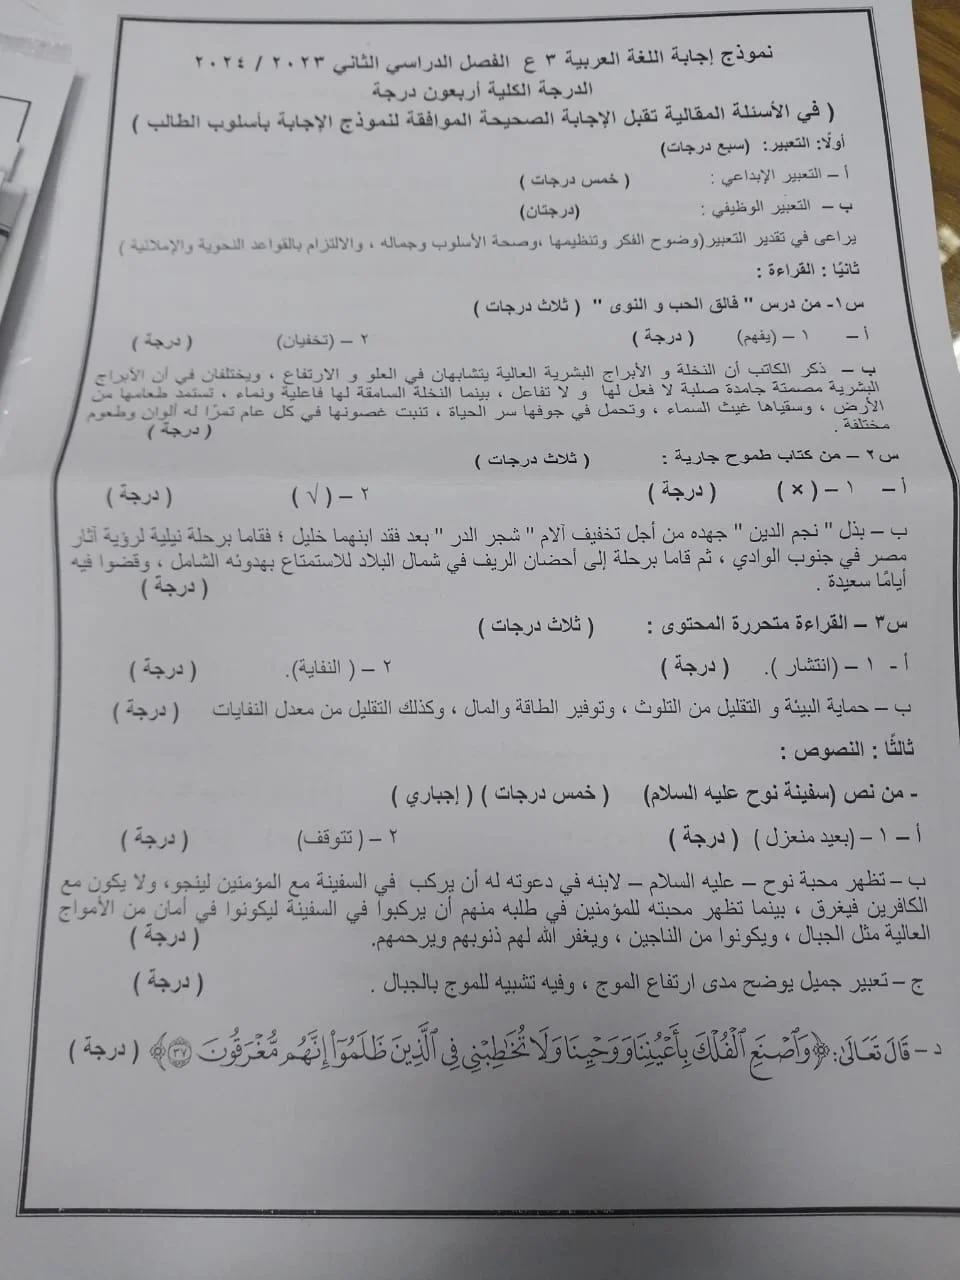 نموذج إجابة اللغة العربية ٣ ع الفصل الدراسي الثاني ٢٠٢٣ / ٢٠٢٤
الدرجة الكلية أربعون درجة
( في الأسئلة المقالية تقبل الإجابة الصحيحة الموافقة لنموذج الإجابة بأسلوب الطالب )
أولًا: التعبير: (سبع درجات)
أ – التعبير الإبداعي : ( خمس درجات )
ب – التعبير الوظيفي : (درجتان)
يراعى في تقدير التعبير(وضوح الفكر وتنظيمها ،وصحة الأسلوب وجماله ، والالتزام بالقواعد النحوية والإملائية )
ثانيًا : القراءة :
س١- من درس " فالق الحب و النوى " ( ثلاث درجات )
أ – ١ – (يفهم) ( درجة ) ٢ – (تخفيان) ( درجة )
ب – ذكر الكاتب أن النخلة و الأبراج البشرية العالية يتشابهان في العلو و الارتفاع ، ويختلفان في أن الأبراج
البشرية مصمتة جامدة صلبة لا فعل لها و لا تفاعل ، بينما النخلة السامقة لها فاعلية ونماء ، تستمد طعامها من
الأرض ، وسقياها غيث السماء ، وتحمل في جوفها سر الحياة ، تنبت غصونها في كل عام تمرًا له ألوان وطعوم
مختلفة . ( درجة )
س٢ – من كتاب طموح جارية : ( ثلاث درجات )
أ – ١ – ( × ) ( درجة ) ٢ – ( √ ) ( درجة )
ب – بذل " نجم الدين " جهده من أجل تخفيف آلام " شجر الدر " بعد فقد ابنهما خليل ؛ فقاما برحلة نيلية لرؤية آثار
مصر في جنوب الوادي ، ثم قاما برحلة إلى أحضان الريف في شمال البلاد للاستمتاع بهدوئه الشامل ، وقضوا فيه
أيامًا سعيدة . ( درجة )
س٣ – القراءة متحررة المحتوى : ( ثلاث درجات )
أ - ١ – (انتشار ). ( درجة ) ٢ – ( النفاية). ( درجة )
ب – حماية البيئة و التقليل من التلوث ، وتوفير الطاقة والمال ، وكذلك التقليل من معدل النفايات ( درجة )
ثالثًا : النصوص :
- من نص (سفينة نوح عليه السلام) ( خمس درجات ) ( إجباري )
أ – ١ – (بعيد منعزل ) ( درجة ) ٢ – ( تتوقف) ( درجة )
ب – تظهر محبة نوح – عليه السلام – لابنه في دعوته له أن يركب في السفينة مع المؤمنين لينجو، ولا يكون مع
الكافرين فيغرق ، بينما تظهر محبته للمؤمنين في طلبه منهم أن يركبوا في السفينة ليكونوا في أمان من الأمواج
العالية مثل الجبال ، ويكونوا من الناجين ، ويغفر الله لهم ذنوبهم ويرحمهم. ( درجة )
ج – تعبير جميل يوضح مدى ارتفاع الموج ، وفيه تشبيه للموج بالجبال . ( درجة )
د – قَالَ تَعَالَىٰ: ﴿وَٱصۡنَعِ ٱلۡفُلۡكَ بِأَعۡيُنِنَا وَوَحۡيِنَا وَلَا تُخَٰطِبۡنِي فِي ٱلَّذِينَ ظَلَمُوٓاْ إِنَّهُم مُّغۡرَقُونَ ٣٧﴾ ( درجة )